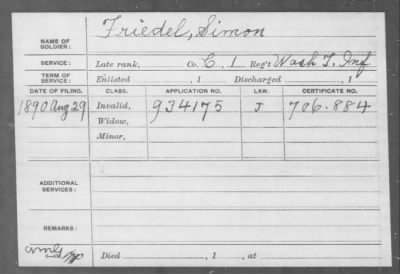 NAME OF SOLDIER: Friedel, Simon
SERVICE: Late rank, Co. C, 1 Reg't Wash T. Inf
TERM OF SERVICE: Enlisted , 1 Discharged , 1
DATE OF FILING. CLASS. APPLICATION NO. LAW. CERTIFICATE NO.
1890 Aug 29 Invalid, 934175 J 706.884
Widow,
Minor,
ADDITIONAL SERVICES:
REMARKS:
Died , 1 , at